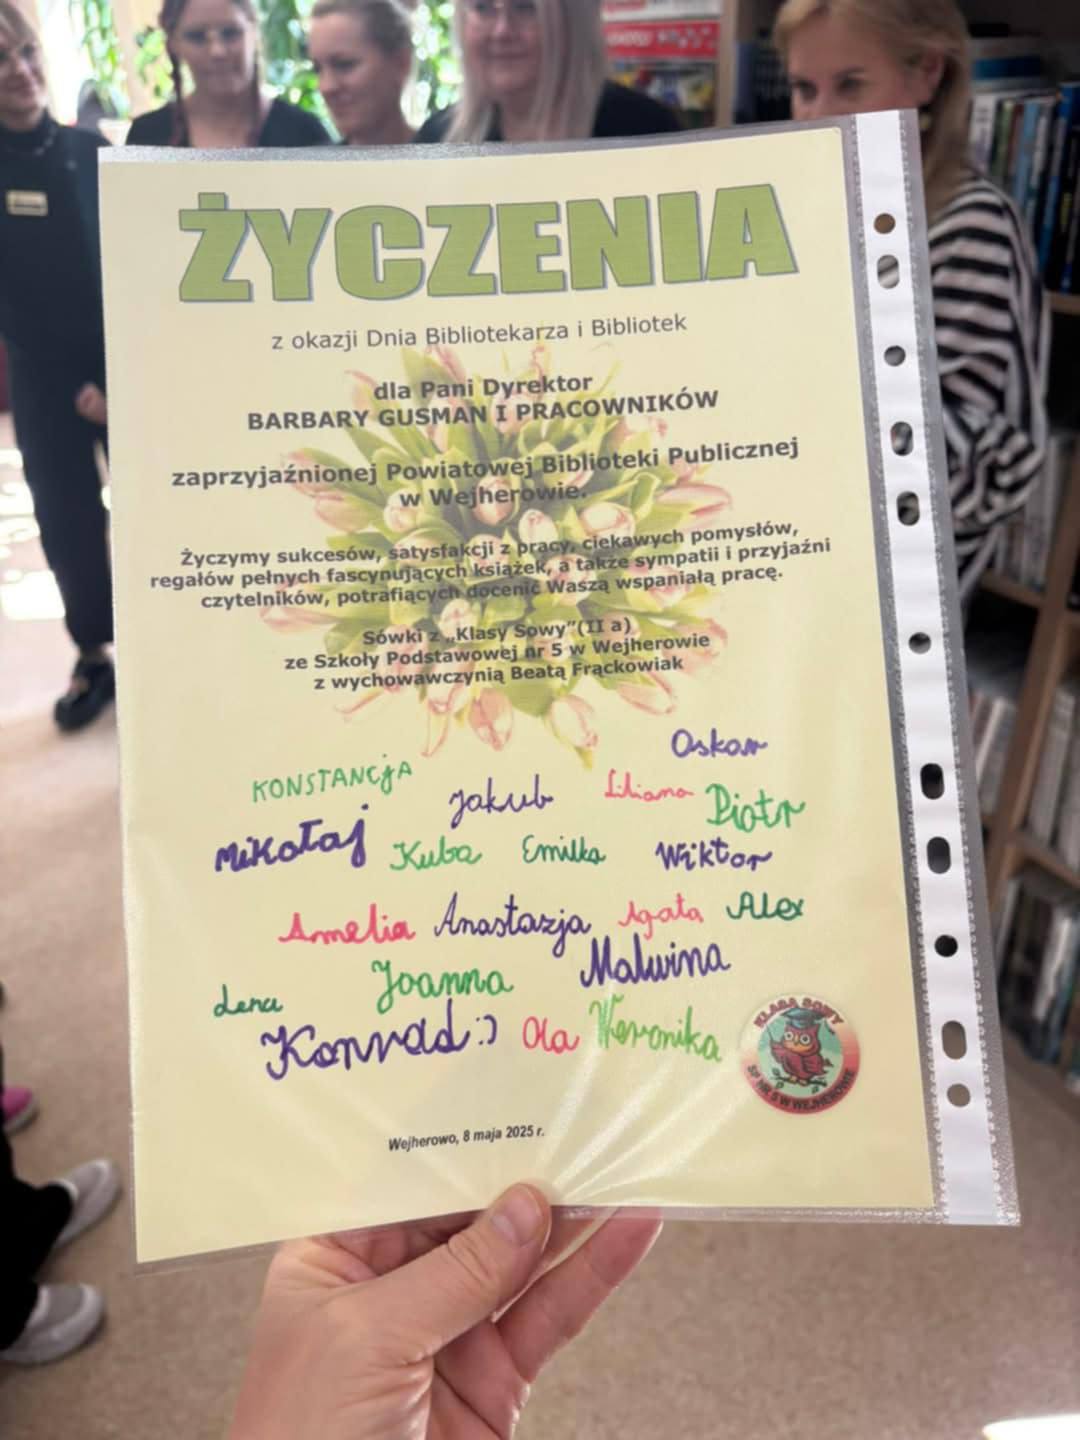 ŻYCZENIA
z okazji Dnia Bibliotekarza i Bibliotek
dla Pani Dyrektor
BARBARY GUSMAN I PRACOWNIKÓW
zaprzyjaźnionej Powiatowej Biblioteki Publicznej
w Wejherowie.
Życzymy sukcesów, satysfakcji z pracy, ciekawych pomysłów,
regałów pełnych fascynujących książek, a także sympatii i przyjaźni
czytelników, potrafiących docenić Waszą wspaniałą pracę.
Sówki z „Klasy Sowy”(II a)
ze Szkoły Podstawowej nr 5 w Wejherowie
z wychowawczynią Beatą Frąckowiak
Oskar
KONSTANCJA Jakub Liliana Piotr
Mikołaj Kuba Emilka Wiktor
Amelia Anastazja Agata Alex
Joanna Malwina
Lena
Konrad :) Ola Weronika
KLASA SOWY
SP NR 5 W WEJHEROWIE
Wejherowo, 8 maja 2025 r.